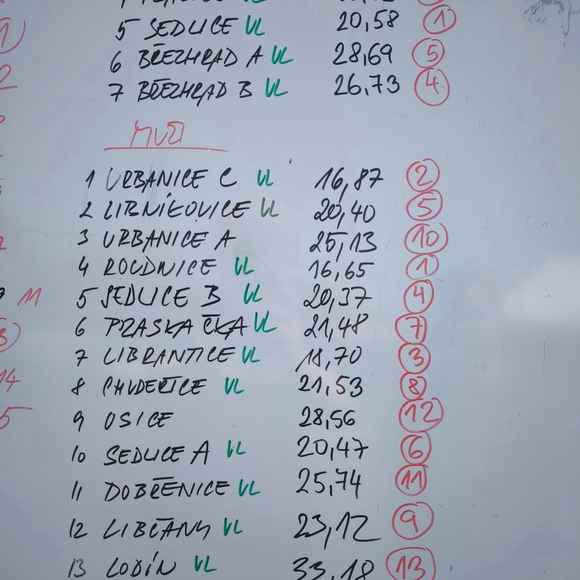 5 SEDLICE VL 20,58 1
6 BŘEZHRAD A VL 28,69 5
7 BŘEZHRAD B VL 26,73 4
MUŽI
1 URBANICE C VL 16,87 2
2 LIBNÍKOVICE VL 20,40 5
3 URBANICE A 25,13 10
4 ROUDNICE VL 16,65 1
5 SEDLICE B VL 20,37 4
6 PRASKAČKA VL 21,48 7
7 LIBRANTICE VL 18,70 3
8 CHUDEŘICE VL 21,53 8
9 OSICE 28,56 12
10 SEDLICE A VL 20,47 6
11 DOBŘENICE VL 25,74 11
12 LIBČANY VL 23,12 9
13 LODÍN VL 33,18 13